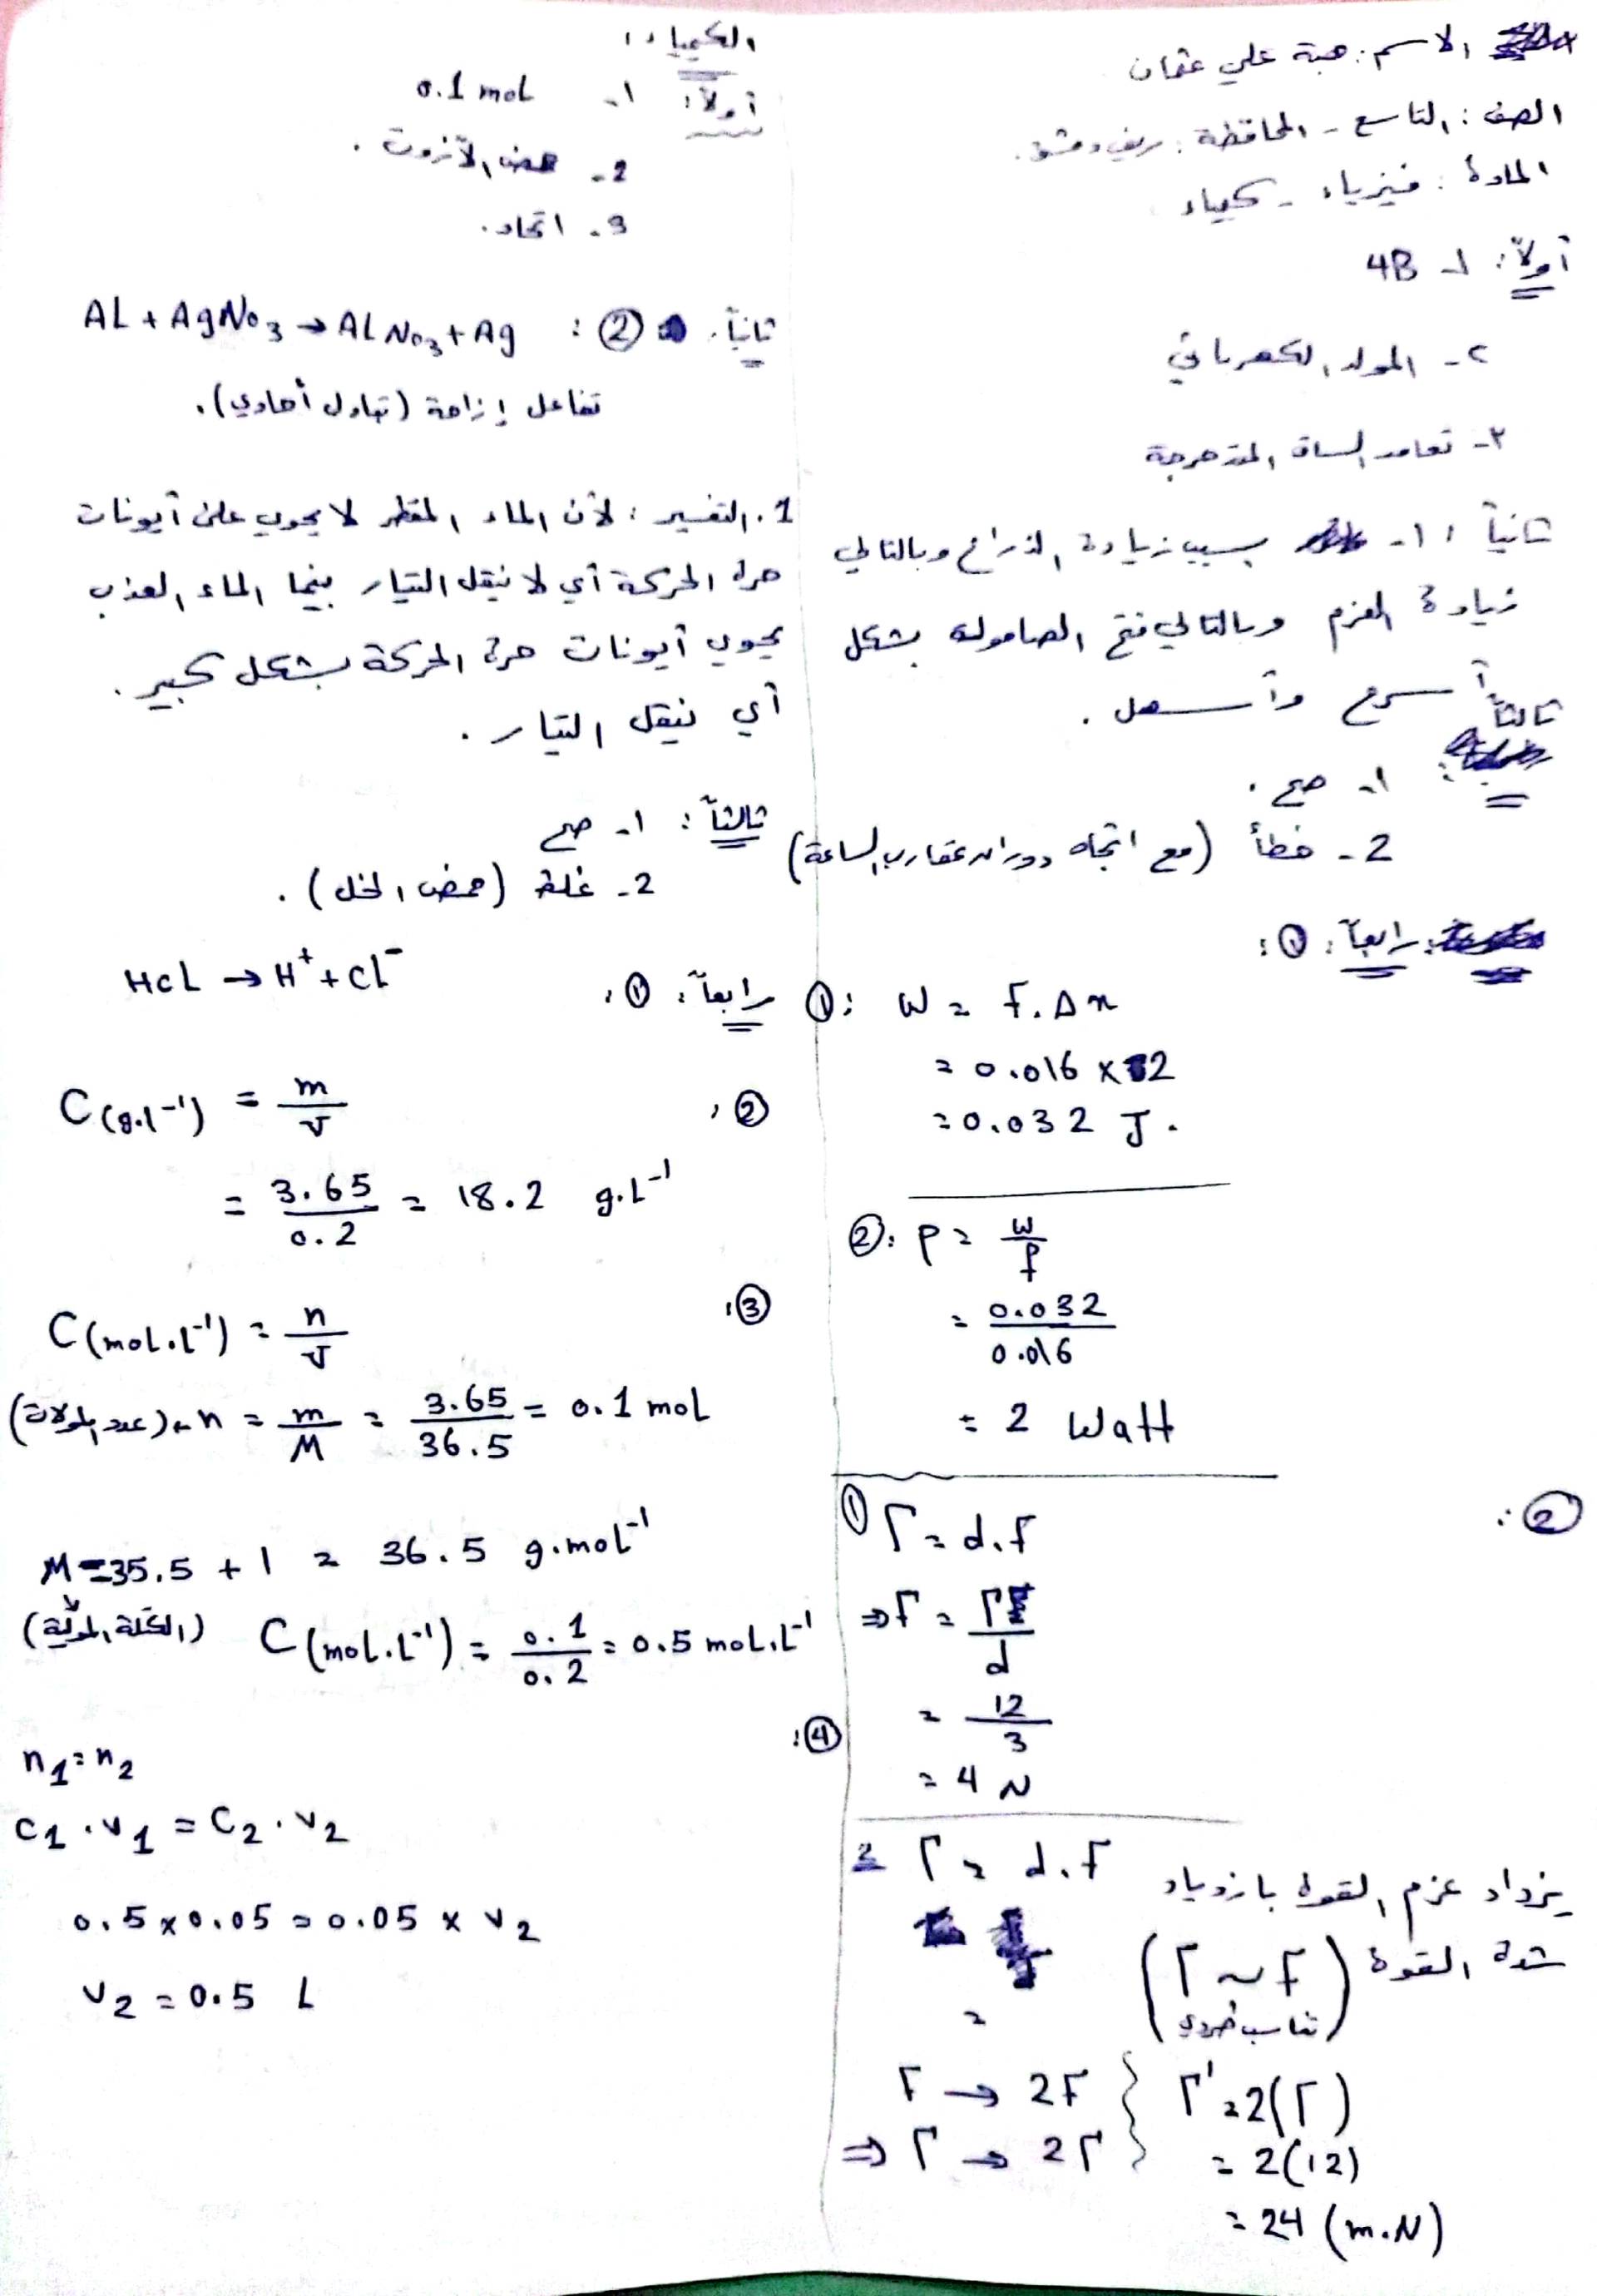 الاسم: هبة علي عثمان
الصف: التاسع - المحافظة: ريف دمشق.
المادة: فيزياء - كيمياء
أولاً: 1- 4B
٢- المولد الكهربائي
٣- تعامد الساق المتدحرجة
ثانياً: ١- بسبب زيادة الذراع وبالتالي
زيادة العزم وبالتالي فتح الصامولة بشكل
أسرع وأسهل.
ثالثاً:
١- صح.
2- خطأ (مع اتجاه دوران عقارب الساعة)
رابعاً: ①:
①: W = F.Δx
= 0.016 x 2
= 0.032 J.
②: P = W/t
= 0.032/0.016
= 2 Watt
②:
① Γ = d.F
⇒ F = Γ/d
= 12/3
= 4 N
2 Γ = d.F
يزداد عزم القوة بازدياد
شدة القوة (Γ ~ F)
تناسب طردي
=
F → 2F } Γ' = 2(Γ)
⇒ Γ → 2Γ = 2(12)
= 24 (m.N)
الكيمياء:
أولاً: ١- 0.1 mol
2- حمض الآزوت.
3- اتحاد.
ثانياً: ②: AL + AgNO3 → ALNO3 + Ag
تفاعل إزاحة (تبادل أحادي).
1. التفسير: لأن الماء المقطر لا يحوي على أيونات
حرة الحركة أي لا ينقل التيار بينما الماء العذب
يحوي أيونات حرة الحركة بشكل كبير.
أي ينقل التيار.
ثالثاً: ١- صح
2- غلط (حمض الخل).
رابعاً: ①: HCL → H⁺ + Cl⁻
②: C(g.l⁻¹) = m/V
= 3.65/0.2 = 18.2 g.L⁻¹
③: C(moL.l⁻¹) = n/V
(عدد المولات) ← n = m/M = 3.65/36.5 = 0.1 moL
M = 35.5 + 1 = 36.5 g.moL⁻¹
(الكتلة المولية)
C(moL.L⁻¹) = 0.1/0.2 = 0.5 moL.L⁻¹
④:
n1 = n2
C1 . V1 = C2 . V2
0.5 x 0.05 = 0.05 x V2
V2 = 0.5 L